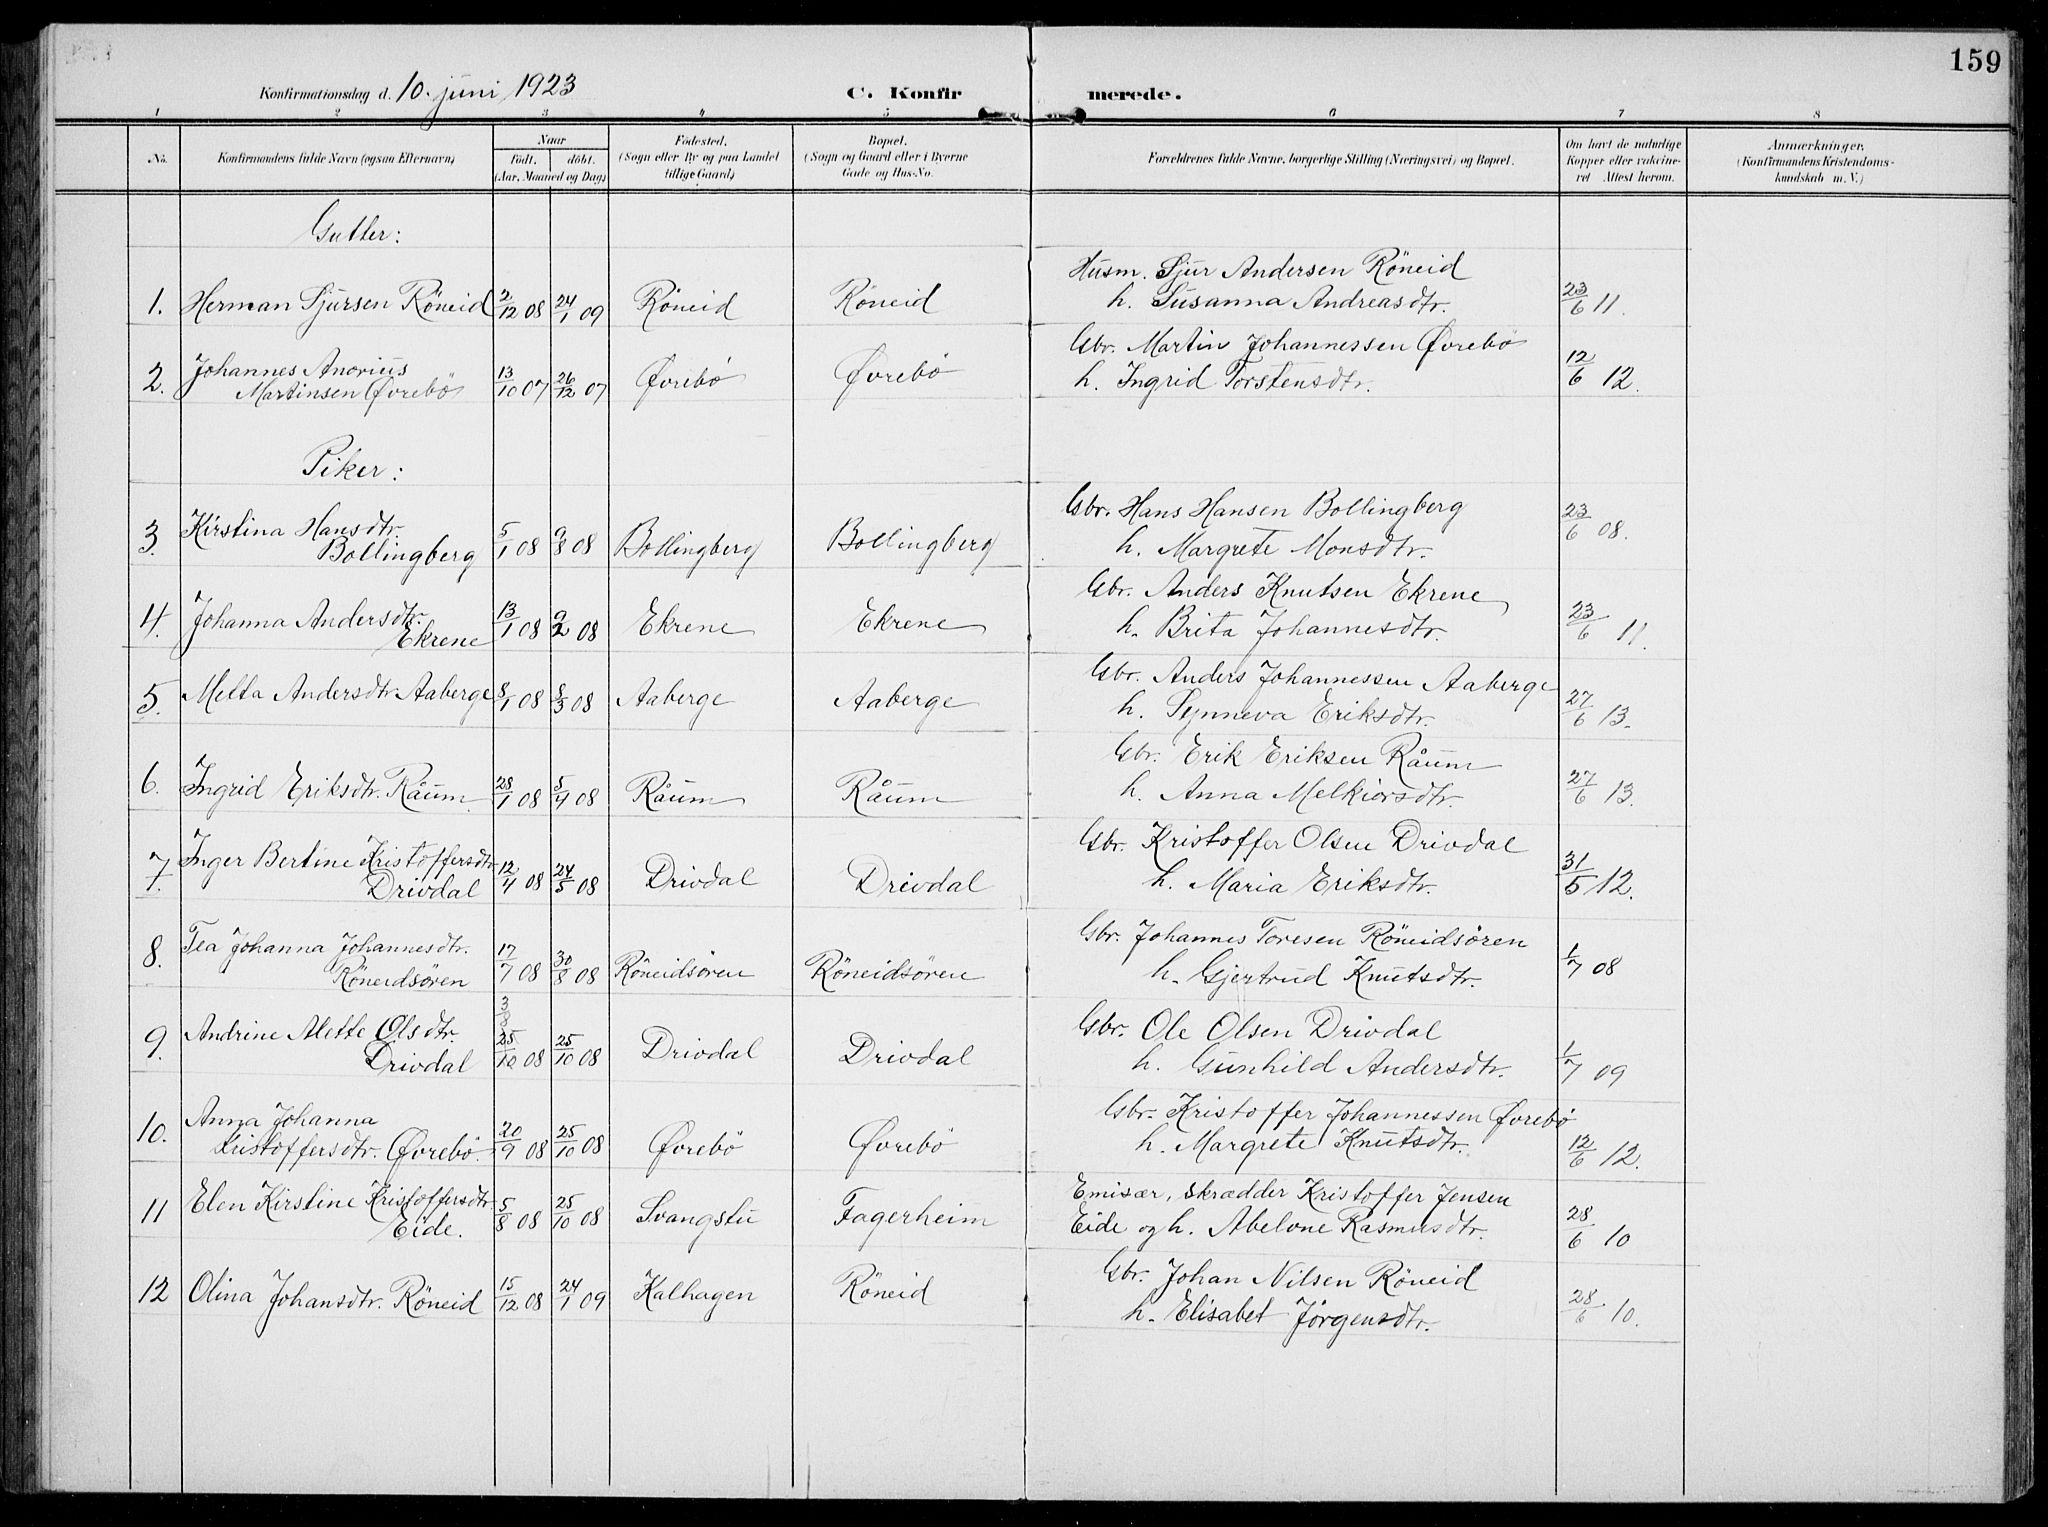 159
Konfirmationsdag d. 10. juni 1923
C. Konfirmerede.
1 2 3 4 5 6 7 8
No.
Konfirmandens fulde Navn (ogsaa Efternavn)
Naar
født. døbt.
(Aar, Maaned og Dag)
Fødested.
(Sogn eller By og paa Landet
tillige Gaard)
Bopæl.
(Sogn og Gaard eller i Byerne
Gade og Hus-No.
Forældrenes fulde Navne, borgerlige Stilling (Næringsvei) og Bopæl.
Om havt de naturlige
Kopper eller vakcine-
ret Attest herom.
Anmærkninger.
(Konfirmandens Kristendoms-
kundskab m. V.)
Gutter:
1. Herman Sjursen Röneid 2/12 08 24/1 09 Röneid Röneid Husm. Sjur Andersen Röneid
h. Susanna Andreasdtr. 23/6 11.
2. Johannes Anorius
Martinsen Øvrebö 13/10 07 26/12 07 Øvrebö Øvrebö Gbr. Martin Johannessen Øvrebö
h. Ingrid Torstensdtr. 12/6 12.
Piker:
3. Kirstina Hansdtr.
Bollingberg 5/1 08 9/8 08 Bollingberg Bollingberg Gbr. Hans Hansen Bollingberg
h. Margrete Monsdtr. 23/6 08.
4. Johanna Andersdtr.
Ekrene 13/1 08 9/2 08 Ekrene Ekrene Gbr. Anders Knutsen Ekrene
h. Brita Johannesdtr. 23/6 11.
5. Metta Andersdtr Aaberge 8/1 08 8/3 08 Aaberge Aaberge Gbr. Anders Johannessen Aaberge
h. Synneva Eriksdtr. 27/6 13.
6. Ingrid Eriksdtr. Råum 28/1 08 5/4 08 Råum Råum Gbr. Erik Eriksen Råum
h. Anna Melkiorsdtr. 27/6 13.
7. Inger Bertine Kristoffersdtr
Drivdal 12/4 08 24/5 08 Drivdal Drivdal Gbr. Kristoffer Olsen Drivdal
h. Maria Eriksdtr. 31/5 12.
8. Tea Johanna Johannesdtr.
Röneidsören 17/7 08 30/8 08 Röneidsören Röneidsören Gbr. Johannes Toresen Röneidsören
h. Gjertrud Knutsdtr. 1/7 08
9. Andrine Alette Olsdtr.
Drivdal 25/10 08 25/10 08 Drivdal Drivdal Gbr. Ole Olsen Drivdal
h. Gunhild Andersdtr. 1/7 09
10. Anna Johanna
Kristoffersdtr. Øvrebö. 20/9 08 25/10 08 Øvrebö Øvrebö Gbr. Kristoffer Johannessen Øvrebö
h. Margrete Knutsdtr. 12/6 12.
11 Elen Kirstine Kristoffersdtr.
Eide. 5/8 08 25/10 08 Svangstu Fagerheim Emisær, skrædder Kristoffer Jensen
Eide og h. Abelone Rasmusdtr. 28/6 10
12 Olina Johansdtr. Röneid 15/12 08 24/1 09 Kalhagen Röneid Gbr. Johan Nilsen Röneid
h. Elisabet Jörgensdtr. 28/6 10.